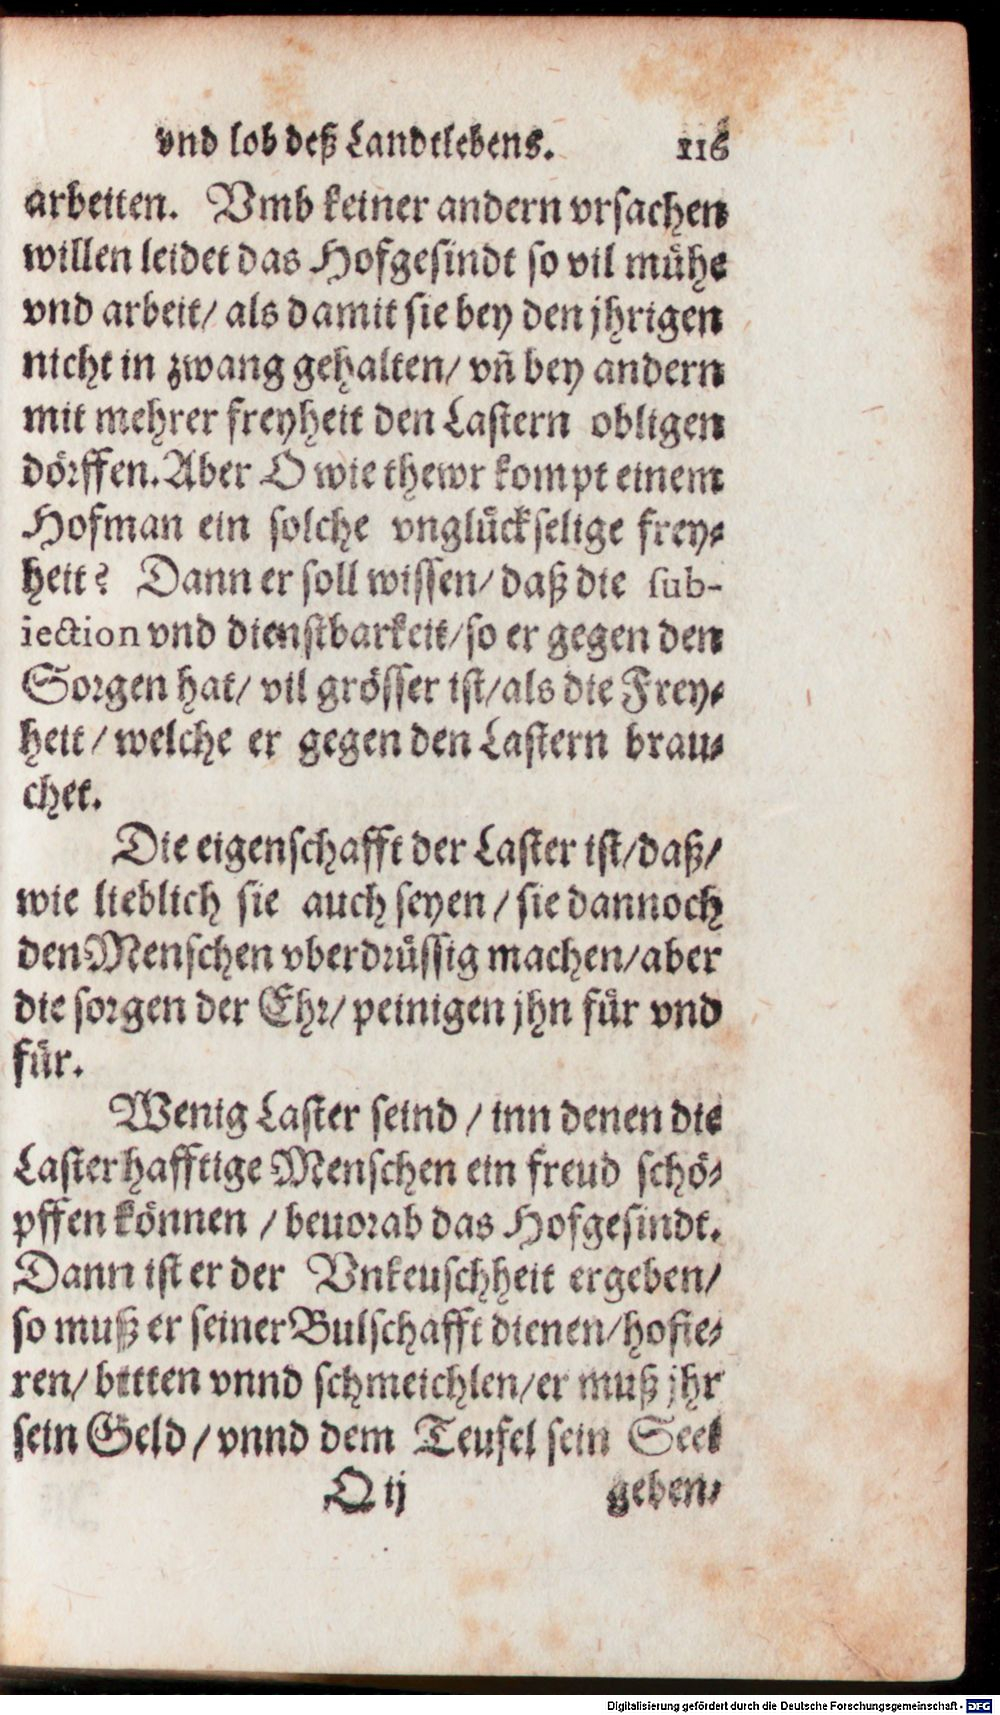 vnd lob deß Landtlebens. 116
arbeiten. Vmb keiner andern vrsachen
willen leidet das Hofgesindt so vil mühe
vnd arbeit/ als damit sie bey den jhrigen
nicht in zwang gehalten/ vñ bey andern
mit mehrer freyheit den Lastern obligen
dörffen. Aber O wie thewr kompt einem
Hofman ein solche vnglückselige frey-
heit? Dann er soll wissen/ daß die sub-
iection vnd dienstbarkeit/ so er gegen den
Sorgen hat/ vil grösser ist/ als die Frey-
heit/ welche er gegen den Lastern brau-
chet.
Die eigenschafft der Laster ist/ daß/
wie lieblich sie auch seyen/ sie dannoch
den Menschen vberdrüssig machen/ aber
die sorgen der Ehr/ peinigen jhn für vnd
für.
Wenig Laster seind/ inn denen die
Lasterhafftige Menschen ein freud schö-
pffen können/ beuorab das Hofgesindt.
Dann ist er der Vnkeuschheit ergeben/
so muß er seiner Bulschafft dienen/ hofie-
ren/ bitten vnnd schmeichlen/ er muß jhr
sein Geld/ vnnd dem Teufel sein Seel
Q ij geben-
Digitalisierung gefördert durch die Deutsche Forschungsgemeinschaft - DFG